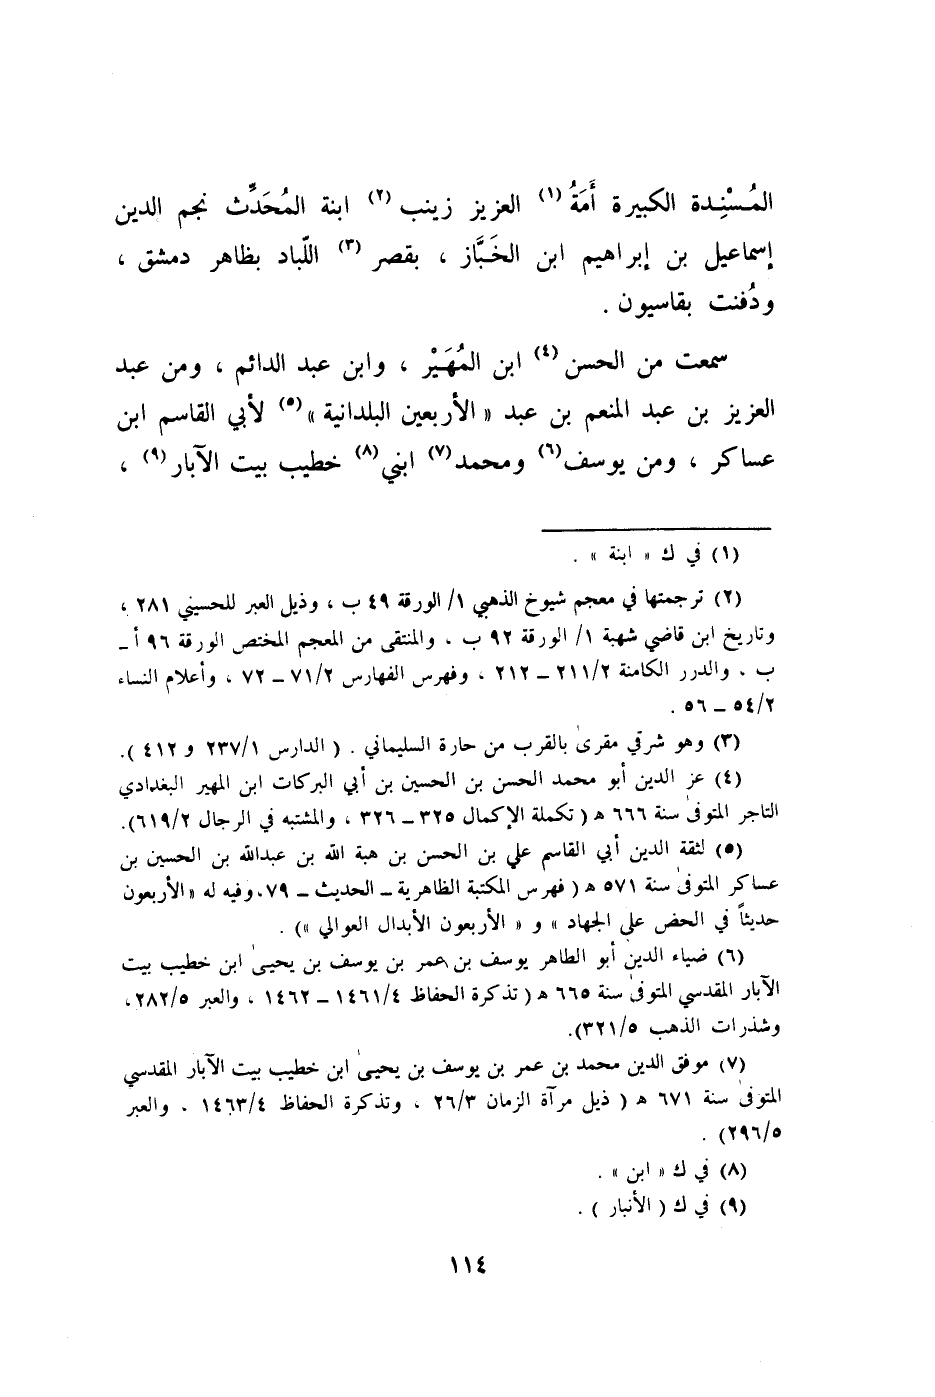 المُسْنِدة الكبيرة أَمَةُ (١) العزيز زينب (٢) ابنة المُحَدِّث نجم الدين
إسماعيل بن إبراهيم ابن الخَبَّاز ، بقصر (٣) اللّباد بظاهر دمشق ،
ودُفنت بقاسيون .
سمعت من الحسن (٤) ابن المُهَيْر ، وابن عبد الدائم ، ومن عبد
العزيز بن عبد المنعم بن عبد « الأربعين البلدانية » (٥) لأبي القاسم ابن
عساكر ، ومن يوسف (٦) ومحمد (٧) ابني (٨) خطيب بيت الآبار (٩) ،
(١) في ك « ابنة » .
(٢) ترجمتها في معجم شيوخ الذهبي ١/ الورقة ٤٩ ب ، وذيل العبر للحسيني ٢٨١ ،
وتاريخ ابن قاضي شهبة ١/ الورقة ٩٢ ب . والمنتقى من المعجم المختص الورقة ٩٦ أ ــ
ب . والدرر الكامنة ٢١١/٢ ــ ٢١٢ ، وفهرس الفهارس ٧١/٢ ــ ٧٢ ، وأعلام النساء
٥٤/٢ ــ ٥٦ .
(٣) وهو شرقي مقرىٰ بالقرب من حارة السليماني . ( الدارس ٢٣٧/١ و ٤١٢ ).
(٤) عز الدين أبو محمد الحسن بن الحسين بن أبي البركات ابن المهير البغدادي
التاجر المتوفىٰ سنة ٦٦٦ هـ ( تكملة الإكمال ٣٢٥ ــ ٣٢٦ ، والمشتبه في الرجال ٦١٩/٢).
(٥) لثقة الدين أبي القاسم علي بن الحسن بن هبة الله بن عبدالله بن الحسين بن
عساكر المتوفىٰ سنة ٥٧١ هـ ( فهرس المكتبة الظاهرية ــ الحديث ــ ٧٩. وفيه له « الأربعون
حديثاً في الحض على الجهاد » و « الأربعون الأبدال العوالي ») .
(٦) ضياء الدين أبو الطاهر يوسف بن عمر بن يوسف بن يحيىٰ ابن خطيب بيت
الآبار المقدسي المتوفىٰ سنة ٦٦٥ هـ ( تذكرة الحفاظ ١٤٦١/٤ ــ ١٤٦٢ ، والعبر ٢٨٢/٥ ،
وشذرات الذهب ٣٢١/٥).
(٧) موفق الدين محمد بن عمر بن يوسف بن يحيىٰ ابن خطيب بيت الآبار المقدسي
المتوفىٰ سنة ٦٧١ هـ ( ذيل مرآة الزمان ٢٦/٣ ، وتذكرة الحفاظ ١٤٦٣/٤ . والعبر
٢٩٦/٥) .
(٨) في ك « ابن » .
(٩) في ك ( الأنبار ) .
١١٤